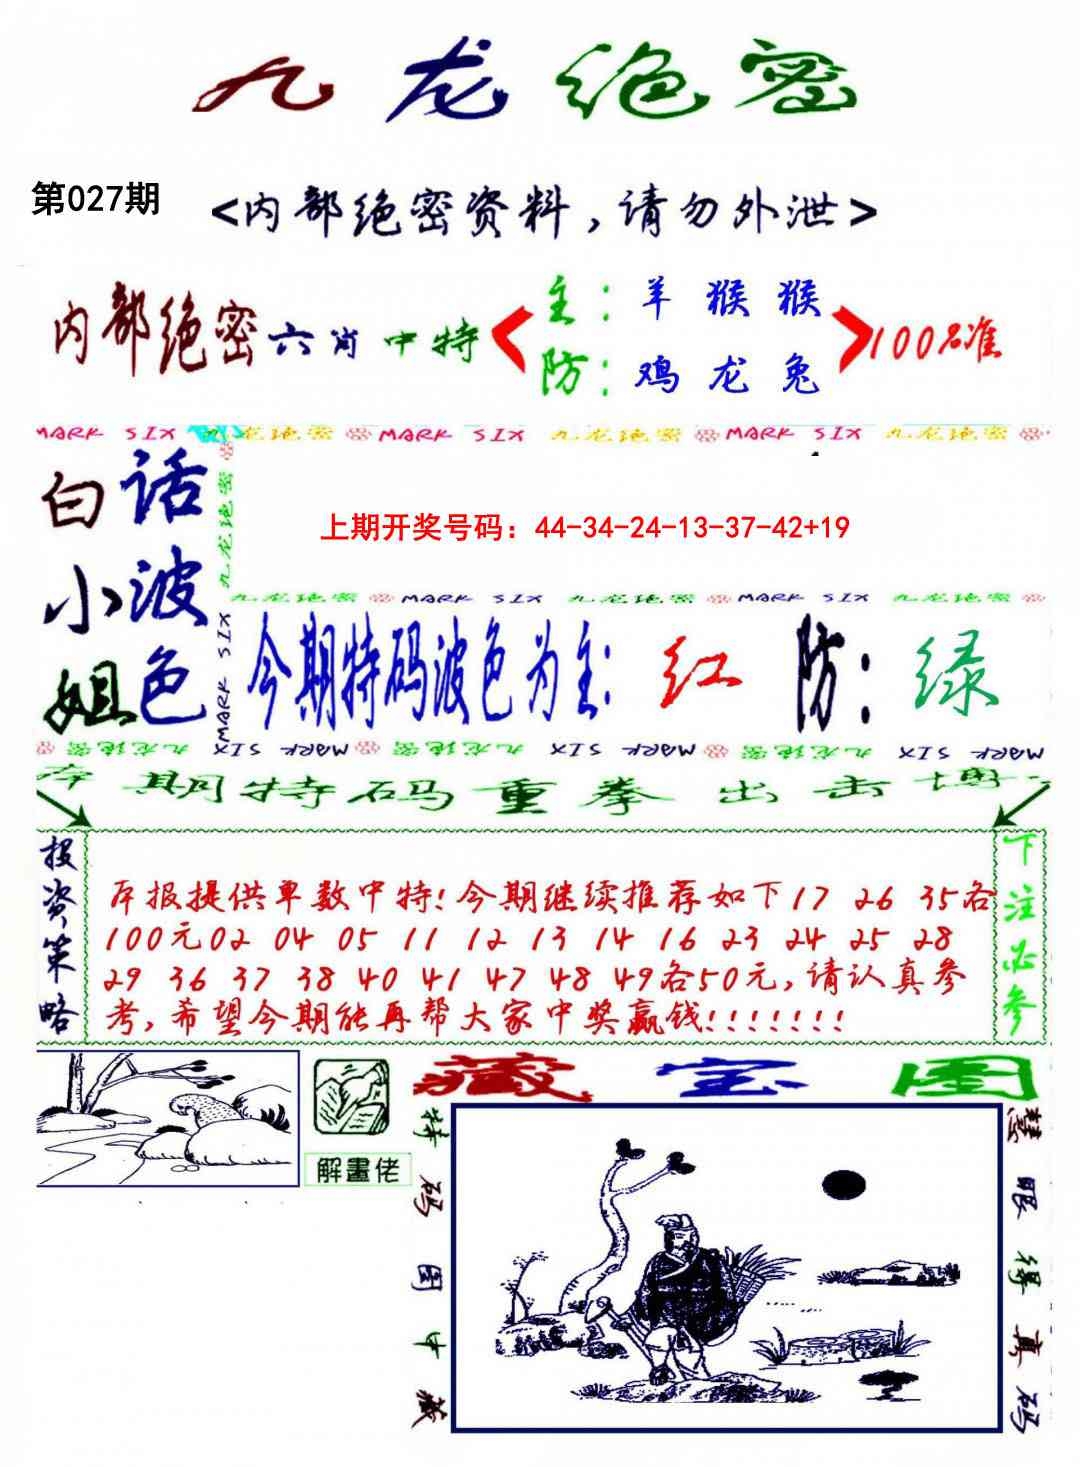 九龙绝密
第027期
<内部绝密资料,请勿外泄>
内部绝密六肖中特
主:羊猴猴
防:鸡龙兔
100%准
MARK SIX 九龙绝密 MARK SIX 九龙绝密 MARK SIX 九龙绝密
白小姐
话波色
九龙绝密
MARK SIX
上期开奖号码：44-34-24-13-37-42+19
九龙绝密 MARK SIX 九龙绝密 MARK SIX 九龙绝密
今期特码波色为主:红 防:绿
九龙绝密 MARK SIX 九龙绝密 MARK SIX 九龙绝密 MARK SIX
本期特码重拳出击博
投资策略
本报提供单数中特!今期继续推荐如下17 26 35各
100元02 04 05 11 12 13 14 16 23 24 25 28
29 36 37 38 40 41 47 48 49各50元,请认真参
考,希望今期能再帮大家中奖赢钱!!!!!!!
下注必参
解畫佬
藏宝图
特码图中藏
慧眼得真码